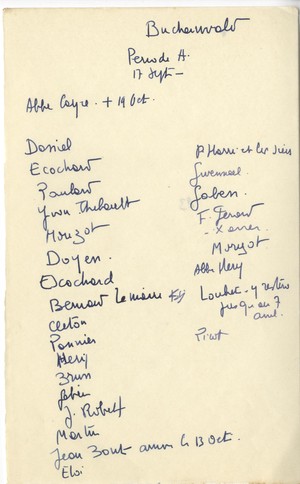 Buchenwald
Periode A.
17 Sept –
Abbé Cayre. + 19 Oct.
Daniel
Ecochard
Poulard
Yvon Thibault
Mouzot
Doyen
Ecochard
Bernard Lemoine
Cleton
Ponnier
Hery
Brun
J. Robert
Martin
Jean Bout arrivé le 13 Oct.
Eloi
P Harri et les siens
Gwennael
Gaben
F. Gerard
- Xavier
Mouzot
Abbé Hery
Louhet - y restera
jusqu'au 7
avril.
Picot